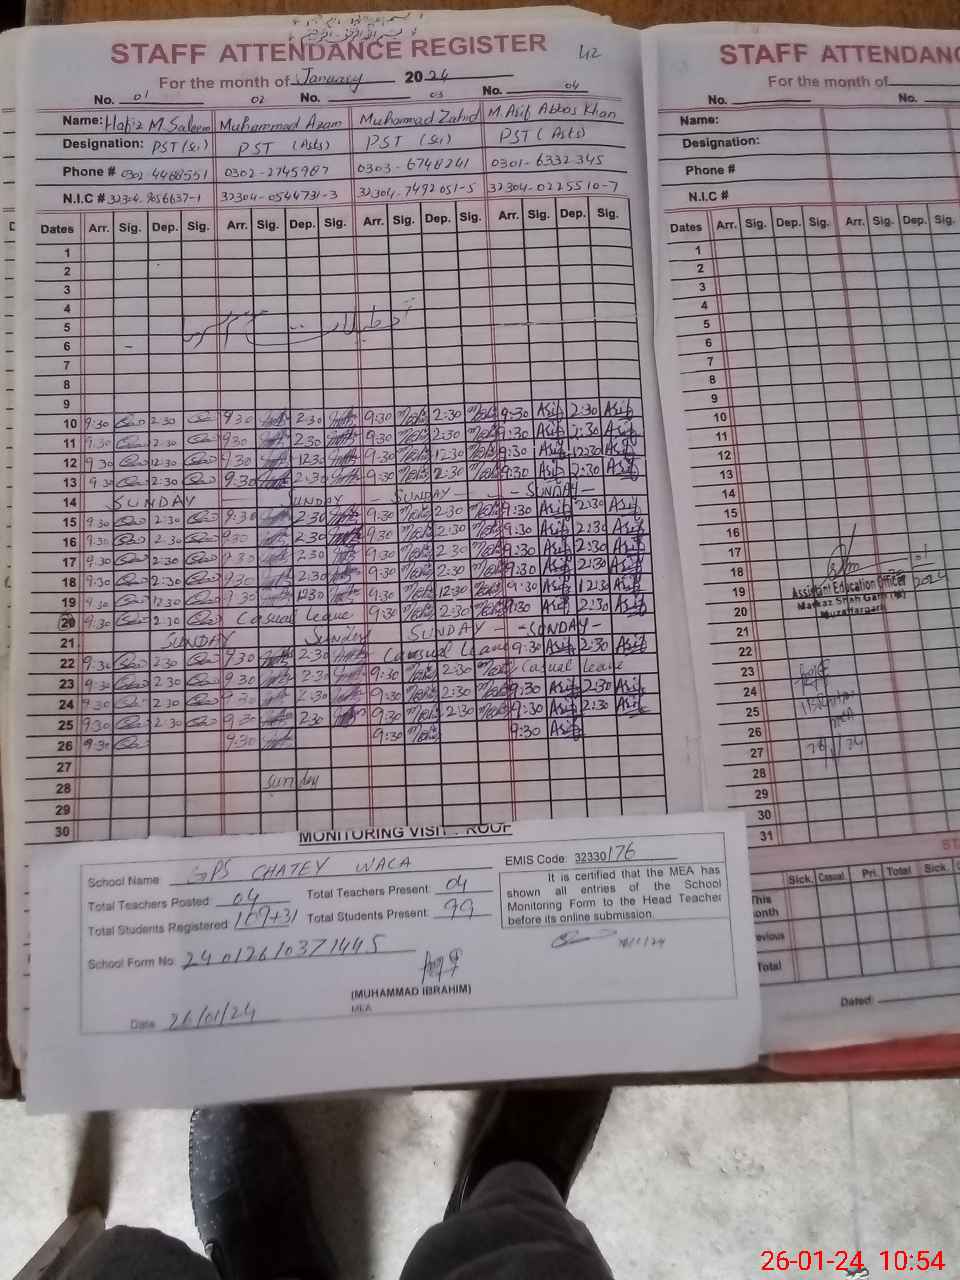 STAFF ATTENDANCE REGISTER 42
For the month of January 2024
No. 01 02 No. 03 No. 04
Name: Hafiz M. Saleem Muhammad Azam Muhammad Zahid M. Asif Abbas Khan
Designation: PST (Sci) PST (Arts) PST (Sci) PST (Arts)
Phone # 0302-4468551 0302-2745987 0303-6748241 0301-6332345
N.I.C # 32304-9056637-1 32304-0544731-3 32304-7492051-5 32304-0225510-7
Dates Arr. Sig. Dep. Sig. Arr. Sig. Dep. Sig. Arr. Sig. Dep. Sig. Arr. Sig. Dep. Sig.
1
2
3
4
5
6
7
8
9
10 9:30 2:30 9:30 2:30 9:30 2:30 9:30 Asif 2:30 Asif
11 9:30 2:30 9:30 2:30 9:30 2:30 9:30 Asif 2:30 Asif
12 9:30 12:30 9:30 12:30 9:30 12:30 9:30 Asif 12:30 Asif
13 9:30 2:30 9:30 2:30 9:30 2:30 9:30 Asif 2:30 Asif
14 SUNDAY SUNDAY - SUNDAY - - SUNDAY -
15 9:30 2:30 9:30 2:30 9:30 2:30 9:30 Asif 2:30 Asif
16 9:30 2:30 9:30 2:30 9:30 2:30 9:30 Asif 2:30 Asif
17 9:30 2:30 9:30 2:30 9:30 2:30 9:30 Asif 2:30 Asif
18 9:30 2:30 9:30 2:30 9:30 2:30 9:30 Asif 2:30 Asif
19 9:30 12:30 9:30 12:30 9:30 12:30 9:30 Asif 12:30 Asif
20 9:30 2:30 Casual leave 9:30 2:30 9:30 Asif 2:30 Asif
21 SUNDAY Sunday SUNDAY - - SUNDAY -
22 9:30 2:30 9:30 2:30 Causual leave 9:30 Asif 2:30 Asif
23 9:30 2:30 9:30 2:30 9:30 2:30 Casual leave
24 9:30 2:30 9:30 2:30 9:30 2:30 9:30 Asif 2:30 Asif
25 9:30 2:30 9:30 2:30 9:30 2:30 9:30 Asif 2:30 Asif
26 9:30 9:30 9:30 9:30 Asif
27
28 Sunday
29
30
MONITORING VISIT PROOF
School Name GPS CHATEY WALA
EMIS Code: 32330176
Total Teachers Posted: 04 Total Teachers Present: 04
Total Students Registered 109+31 Total Students Present: 99
School Form No: 24012610371445
It is certified that the MEA has shown all entries of the School Monitoring Form to the Head Teacher before its online submission.
(MUHAMMAD IBRAHIM)
MEA
Date 26/01/24
STAFF ATTENDANC
For the month of
No. No.
Name:
Designation:
Phone #
N.I.C #
Dates Arr. Sig. Dep. Sig. Arr. Sig. Dep. Sig.
1
2
3
4
5
6
7
8
9
10
11
12
13
14
15
16
17
18
19
20
21
22
23
24
25
26
27
28
29
30
31
Assistant Education Officer
Markaz Shah Garh (M)
Muzaffargarh
2024
IBRAHIM
MEA
ST
Sick. Casual Pri. Total Sick.
This
onth
evious
Total
Dated:
26-01-24 10:54